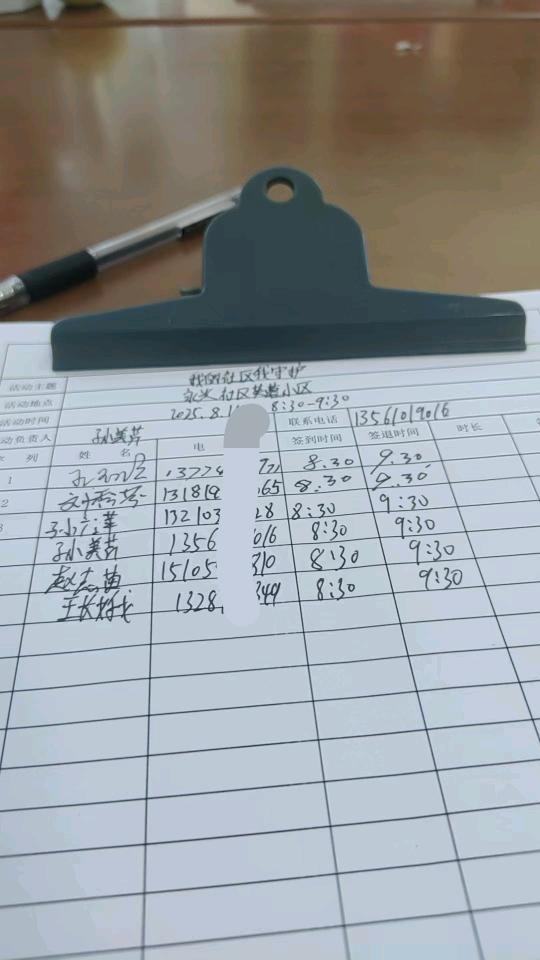 活动主题 我的社区我守护
活动地点 永兴社区芙蓉小区
活动时间 2025.8.1 8:30-9:30
动负责人 孙美芳 联系电话 13561019016
序列 姓名 电 签到时间 签退时间 时长
1 8:30 9:30
2 13181 65 8:30 9:30
3 132103 28 8:30 9:30
孙美芳 1356 016 8:30 9:30
赵 苗 15105 310 8:30 9:30
王长 1328 349 8:30 9:30